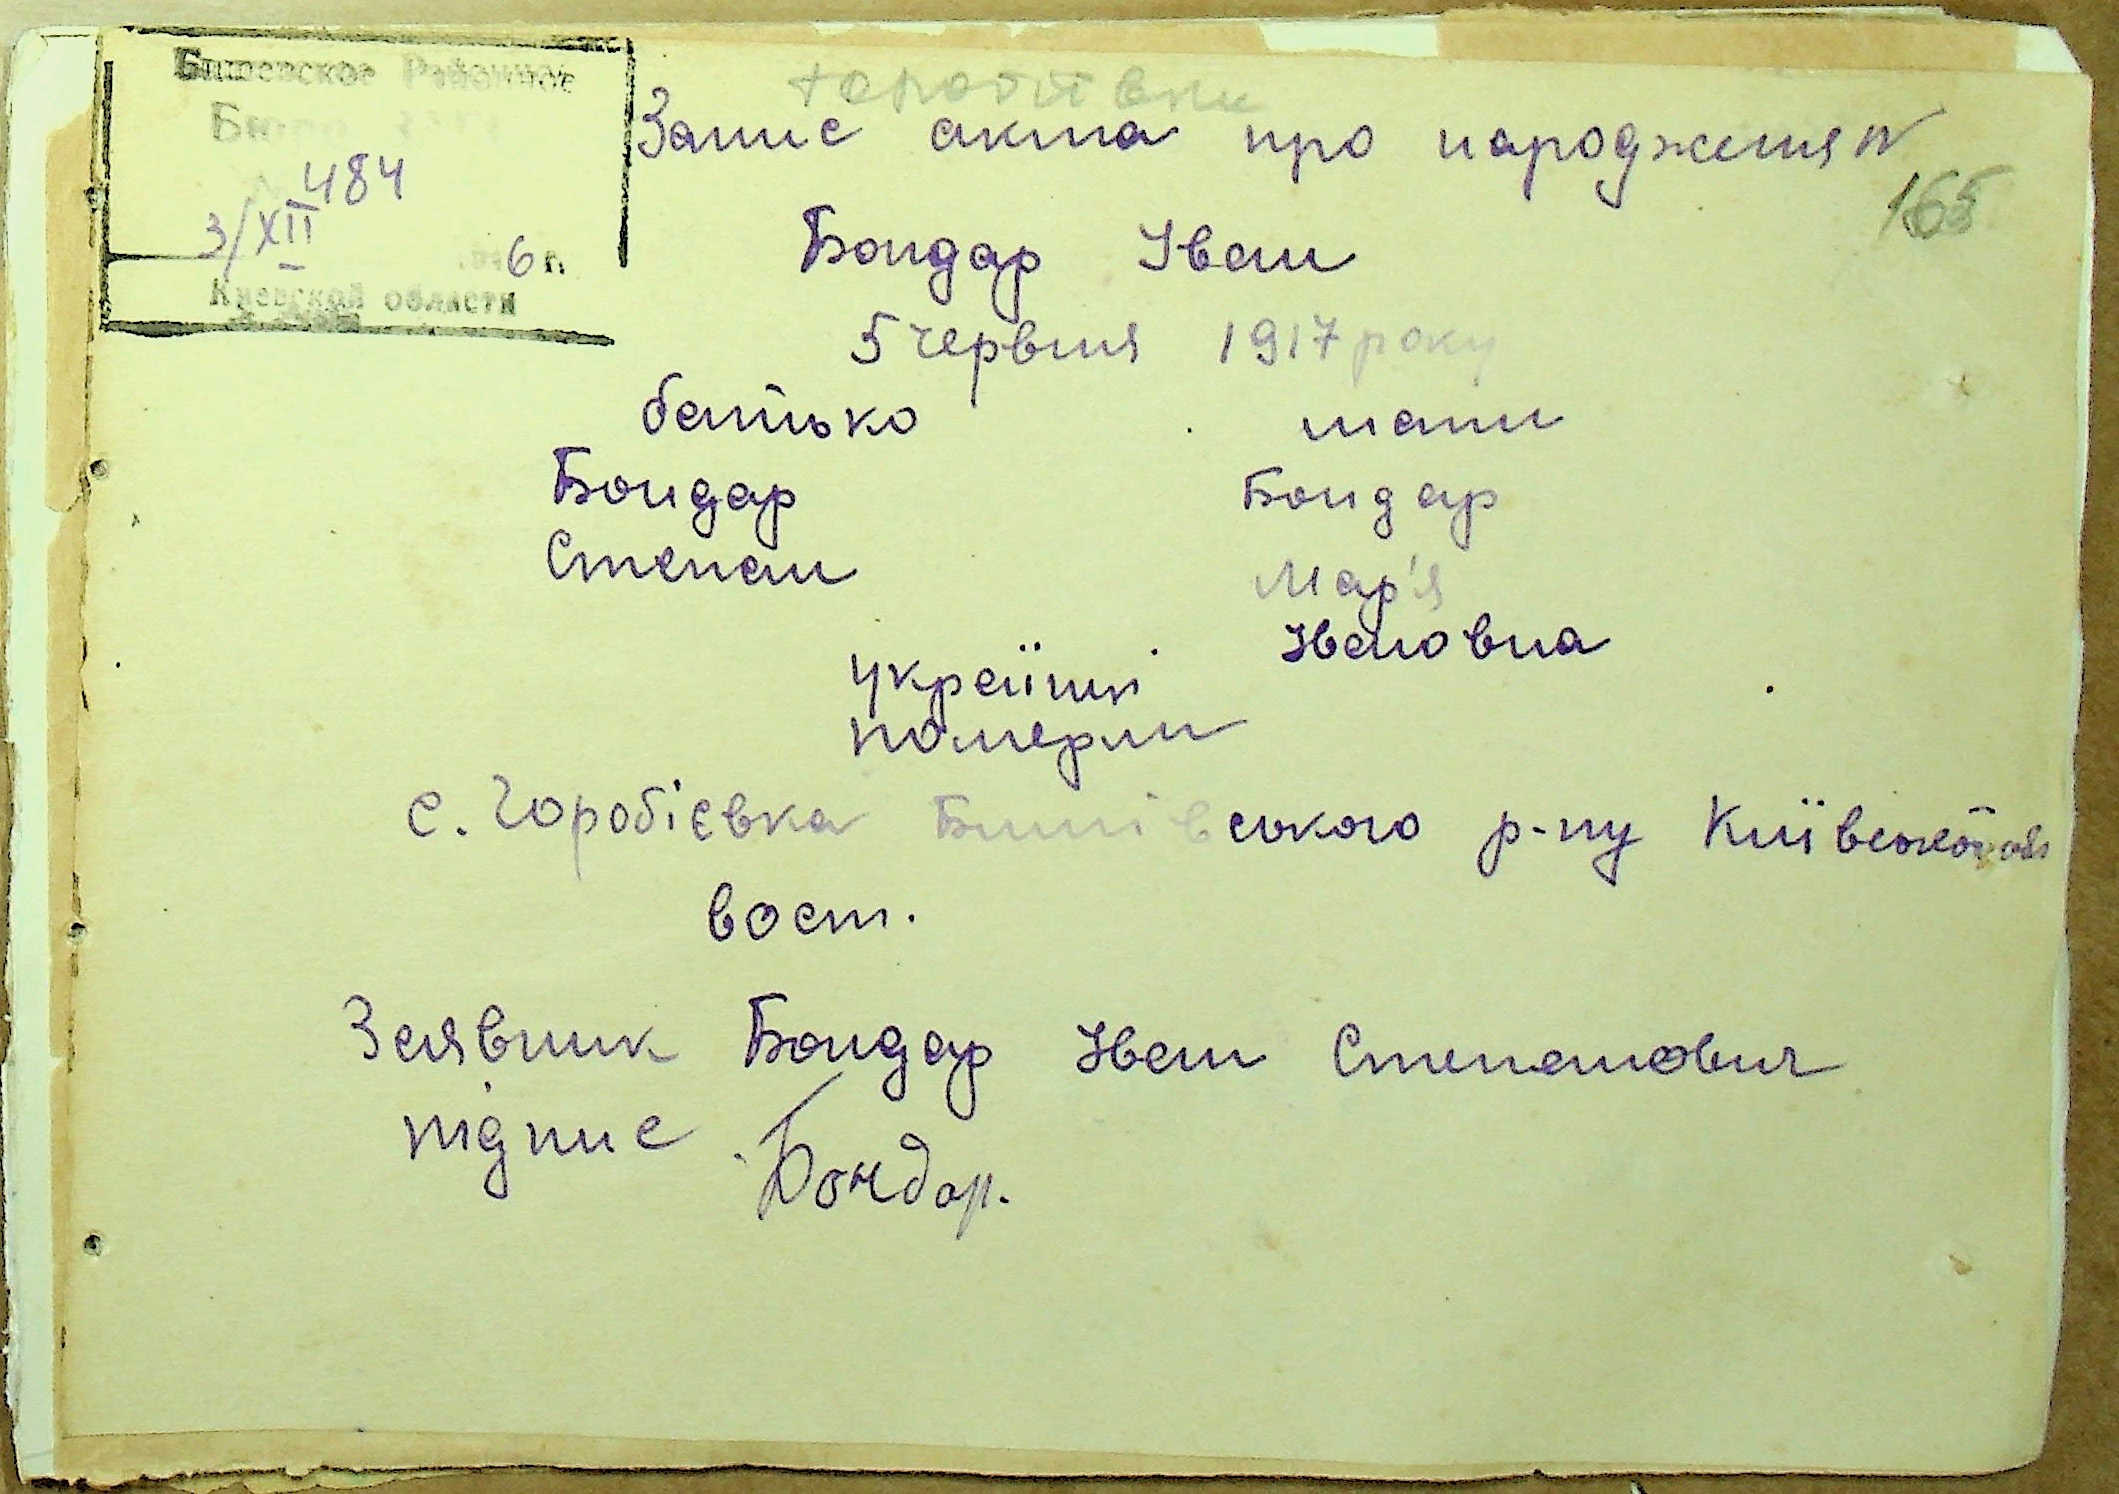 Бишевское Районное
Бюро
484
3/XII 6 г.
Киевской области
Запис акта про народження №
165
Бондар Іван
5 червня 1917 року
батько мати
Бондар Бондар
Степан Мар'я
Івановна
українці
померли
с. Горобієвка Бишівського р-ну Київської обл
вост.
Заявник Бондар Іван Степанович
підпис Бондар.